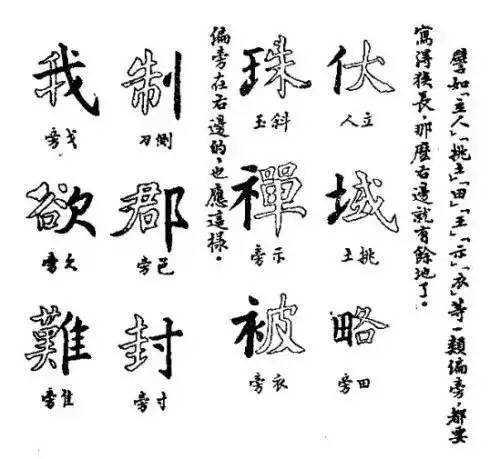 譬如「立人」「挑土」「田」「王」「示」「衣」等一類偏旁,都要
寫得狹長,那麼右邊就有餘地了。
伏
立人
域
挑土
略
田旁
珠
斜玉
禪
示旁
被
衣旁
偏旁在右邊的,也應這樣。
制
側刀
郡
邑旁
封
寸旁
我
戈旁
欲
欠旁
難
隹旁